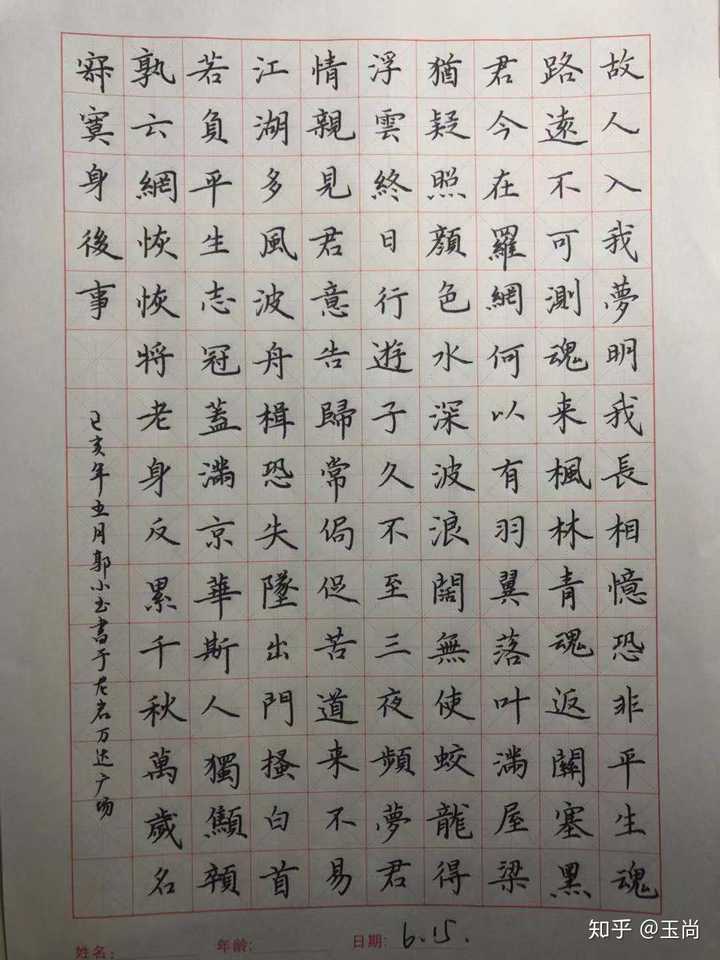 故人入我夢明我長相憶恐非平生魂
路遠不可測魂来楓林青魂返關塞黑
君今在羅網何以有羽翼落叶滿屋梁
猶疑照顏色水深波浪闊無使蛟龍得
浮雲終日行遊子久不至三夜頻夢君
情親見君意告歸常侷促苦道来不易
江湖多風波舟楫恐失墜出門搔白首
若負平生志冠蓋滿京華斯人獨顦顇
孰云網恢恢將老身反累千秋萬歲名
寂寞身後事
己亥年五月郭小玉書于龙岩万达广场
姓名: 年龄: 日期: 6.15.
知乎 @玉尚